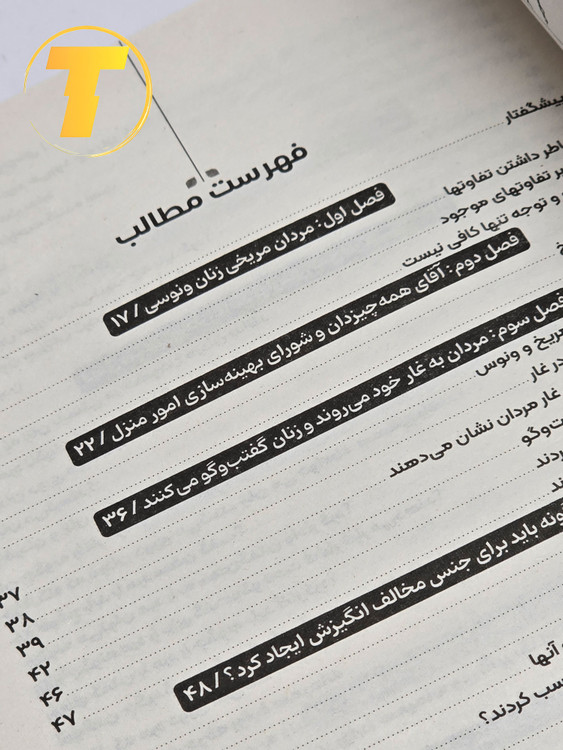 T
فهرست مطالب
پیشگفتار
داشتن تفاوتها
تفاوتهای موجود
و توجه تنها کافی نیست
فصل اول: مردان مریخی زنان ونوسی / ۱۷
فصل دوم: آقای همه‌چیزدان و شورای بهینه‌سازی امور منزل / ۲۲
فصل سوم: مردان به غار خود می‌روند و زنان گفتب‌وگو می‌کنند / ۳۶
مریخ و ونوس
در غار
غار مردان نشان می‌دهند
ونه باید برای جنس مخالف انگیزش ایجاد کرد؟ / ۴۸
۳۷
۳۸
۳۹
۴۲
۴۶
۴۷
آنها
کردند؟